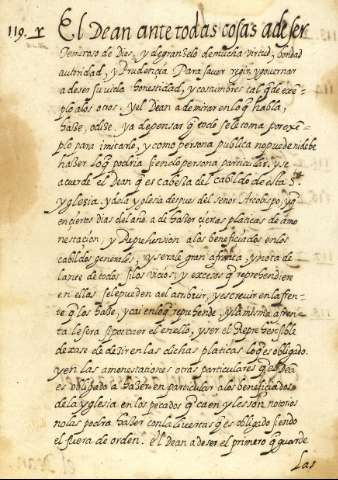 119. r El Dean ante todas cosas a de ser
Temeroso de Dios, y de gran zelo de mucha virtud, bondad
autoridad, y Prudencia Para saver regir, y governar
a de ser su vida honestidad, y costumbres tal que de ex
plo a los otros. y el Dean a de mirar en lo que habla,
haze, o dize. y a de pensar que todo se le toma por exe
plo para imitarlo, y como persona publica no puede ni debe
hazer lo que podria siendo persona particular, y se
acuerde el Dean que es cabeza del cabildo de esta S.
yglesia, y de la yglesia despues del señor Arcobispo, y que
en ciertos dias del año a de hazer ciertas platicas de amo
nestacion, y Reprehension a los beneficiados en los
cabildos generales, y ser le a gran afrenta, y nota de
la que de todos los vicios, y excesos que reprehendiere
en ellas se le pueden atribuir, y escrevir en la fren
te que los haze, y cai en lo que reprehende, y la misma afren
ta le sera si por caer el en ello, y ser el Reprehensible
dexase de dezir en las dichas platicas lo que es obligado.
y en las amonestaciones otras particulares que el Dea
es obligado a hazer en particular a los beneficiados
de la yglesia en los pecados que caen, y les son notorios
no las podra hazer con la livertad que es obligado siendo
el fuera de orden. el Dean a de ser el primero que guarde
Las